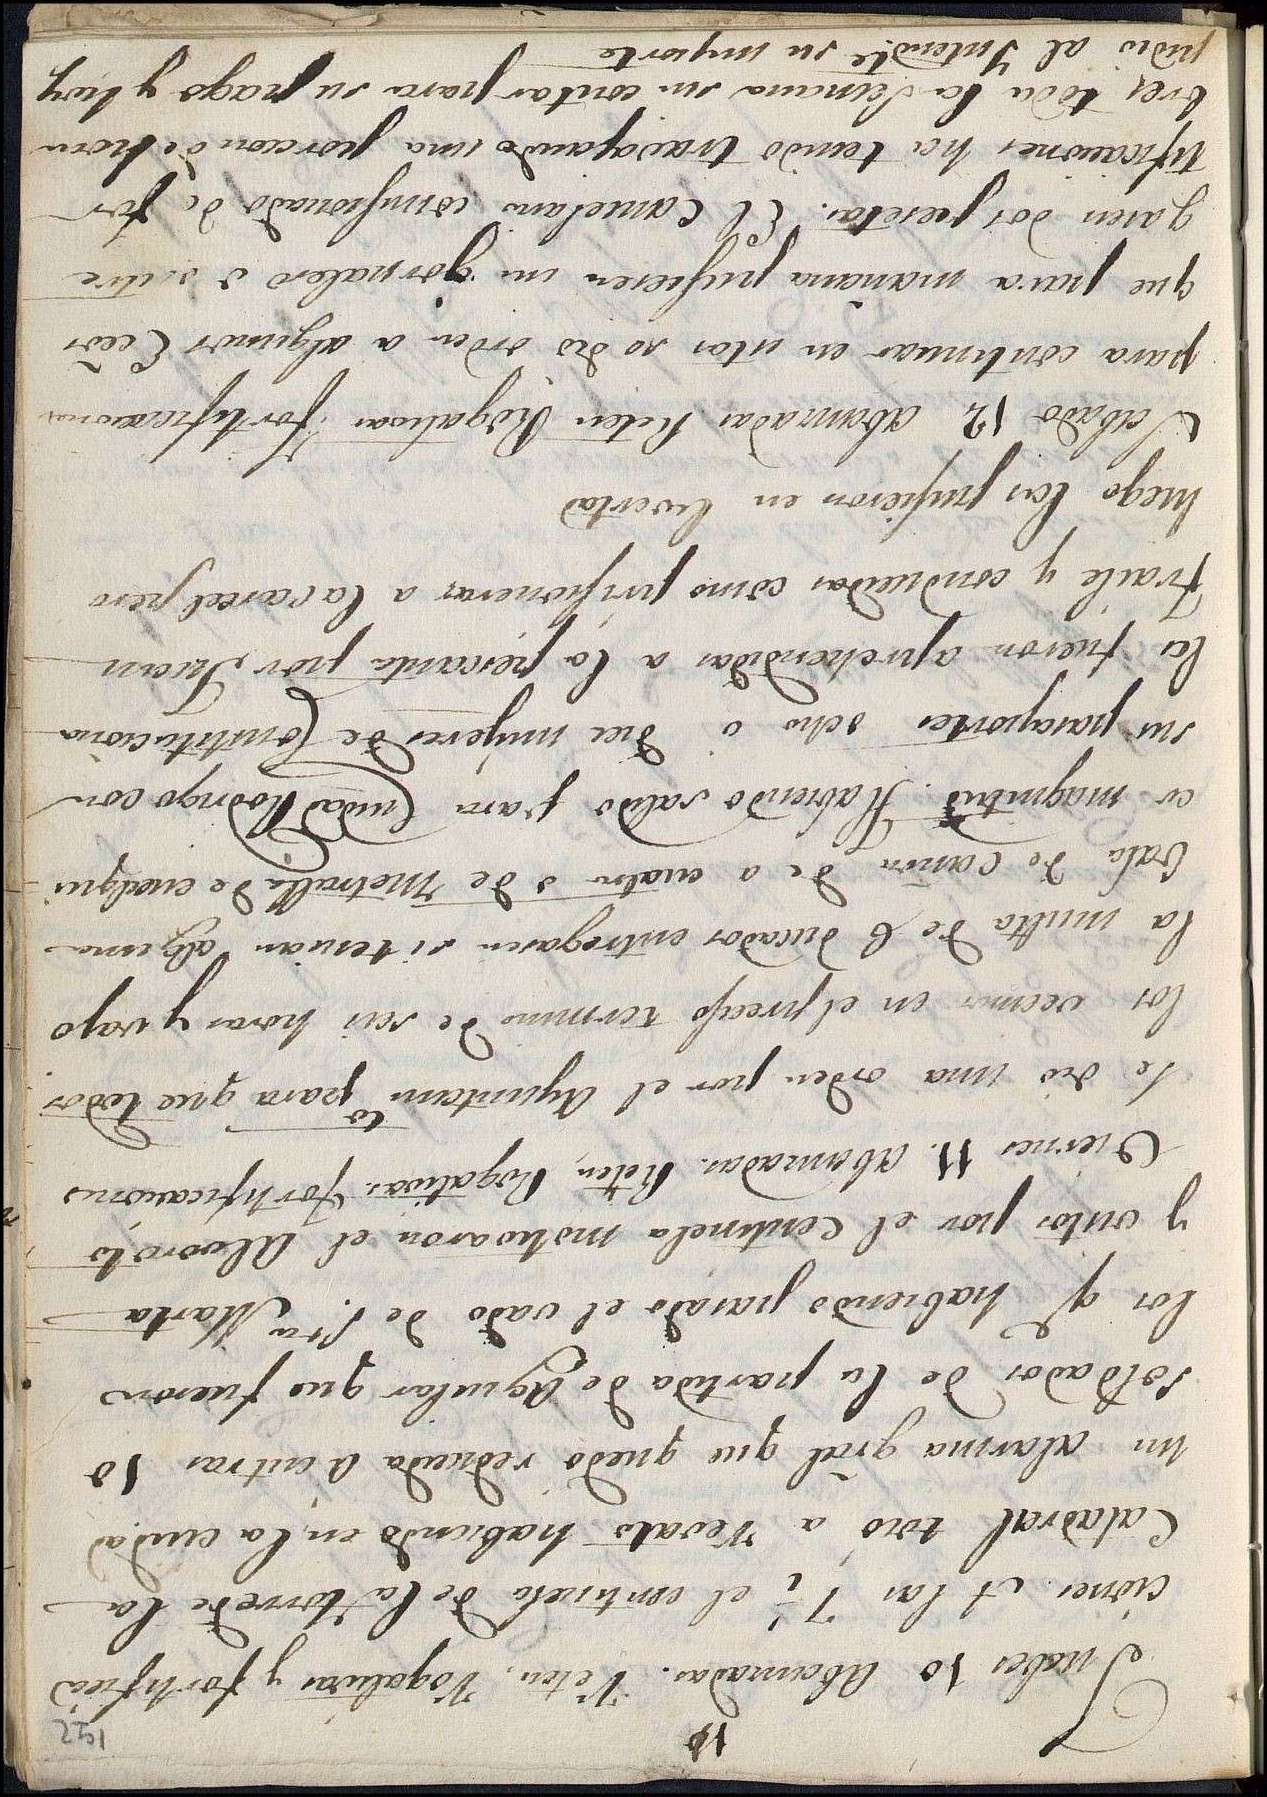 10
152
Jueves 10 Abonadas. Reten, Rogativas y fortifica
ciones. A las 7½ el centinela de la torre de la
Catedral tocó a Revato habiendo en la ciudad
un alarma gral que quedo reducida a entrar 10
soldados de la partida de Aguilar que fueron
los q.e habiendo pasado el vado de Sta Marta
y vistos por el Centinela motivaron el Alvoroto
Viernes 11. abonadas. Reten, Rogativas, fortificaciones
se dio una orden por el Ayuntam.to para que todos
los vecinos en el preciso termino de seis horas y vajo
la multa de 6 ducados entregasen si tenian alguna
bala de cañon de a cuatro o de metralla de cualqui
er magnitud. Habiendo salido para Ciudad Rodrigo con
sus pasaportes ocho o diez mujeres de Constituciona
les fueron aprehendidas a la pescanta por Juan
Fraile y conducidas como prisioneras a la carcel pero
luego las pusieron en livertad
Sabado 12 abonadas Reten Rogativas fortificaciones
para continuar en estas se dio orden a algunos Eccos
que para mañana pusiesen un jornalero o entre
gasen dos pesetas. El Canciano comisionado de for
tificaciones ha tenido travajando una porcion de hom
bres toda la Semana sin contar para su pago y hoy
pidio al Intendte su importe